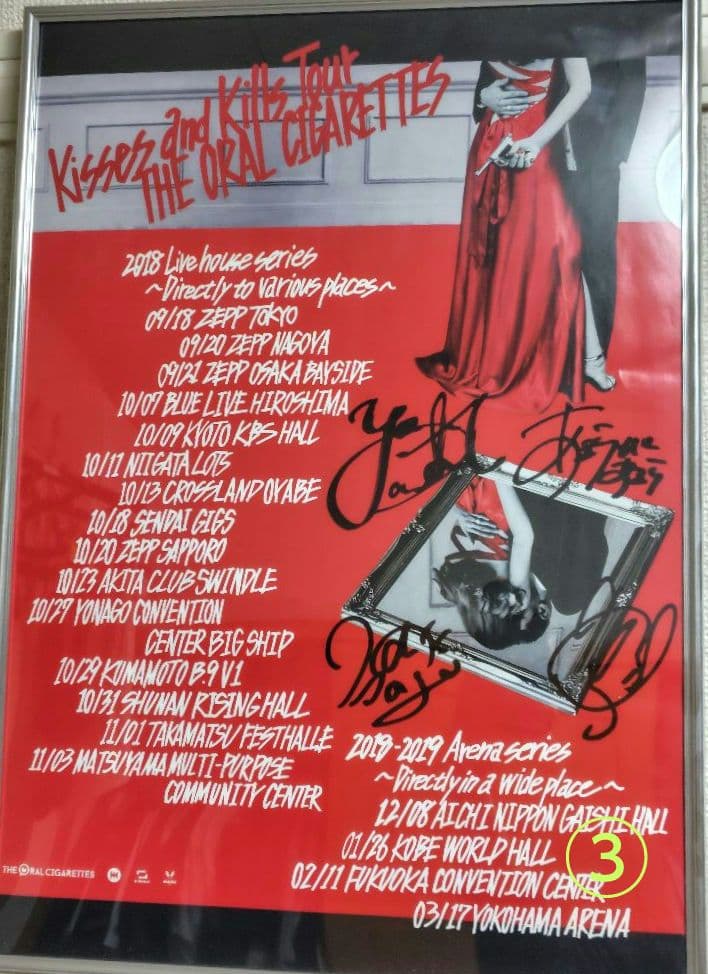 Kisses and Kills Tour
THE ORAL CIGARETTES
2018 Live house series
~Directly to various places~
09/18 ZEPP TOKYO
09/20 ZEPP NAGOYA
09/21 ZEPP OSAKA BAYSIDE
10/07 BLUE LIVE HIROSHIMA
10/09 KYOTO KBS HALL
10/11 NIIGATA LOTS
10/13 CROSSLAND OYABE
10/18 SENDAI GIGS
10/20 ZEPP SAPPORO
10/23 AKITA CLUB SWINDLE
10/27 YONAGO CONVENTION
CENTER BIG SHIP
10/29 KUMAMOTO B.9 V1
10/31 SHUNAN RISING HALL
11/01 TAKAMATSU FESTHALLE
11/03 MATSUYAMA MULTI-PURPOSE
COMMUNITY CENTER
2018-2019 Arena series
~Directly in a wide place~
12/08 AICHI NIPPON GAISHI HALL
01/26 KOBE WORLD HALL
02/11 FUKUOKA CONVENTION CENTER
03/17 YOKOHAMA ARENA
3
THE ORAL CIGARETTES